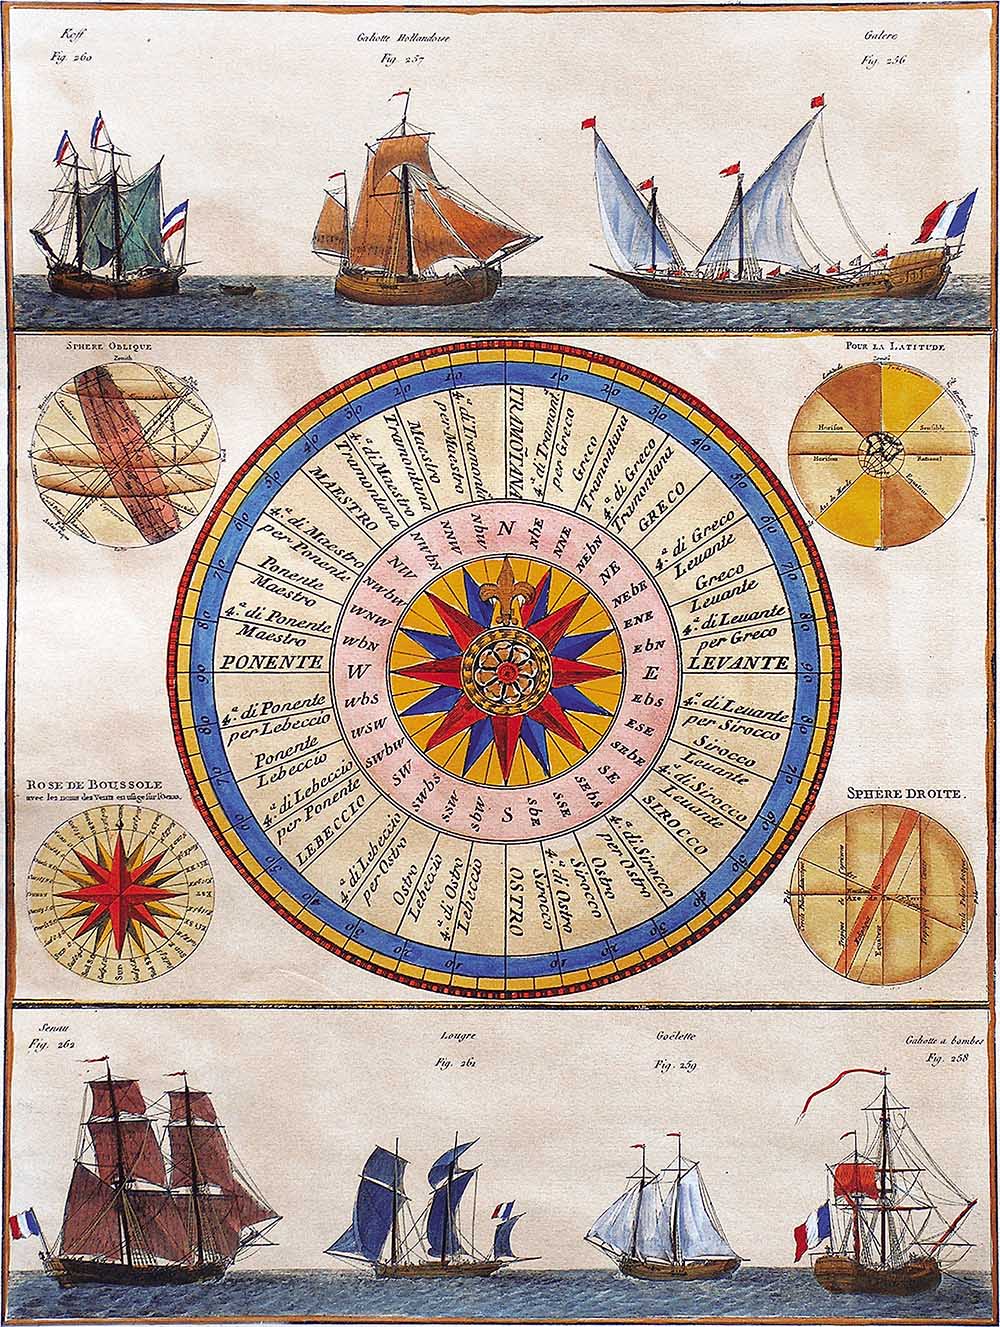 Koff
Fig. 260
Galiotte Hollandoise
Fig. 257
Galere
Fig. 256
SPHERE OBLIQUE
Zenith
POUR LA LATITUDE
Zenith
Horison
Sensible
Horison
Rationel
10
20
30
40
50
60
70
80
90
80
70
60
50
40
30
20
10
10
20
30
40
50
60
70
80
80
70
60
50
40
30
20
10
TRAMOÑTANA
4.ª di Tramont.ª
per Greco
Greco
Tramontana
4.ª di Greco
Tramontana
GRECO
4.ª di Greco
Levante
Greco
Levante
4.ª di Levante
per Greco
LEVANTE
4.ª di Levante
per Sirocco
Sirocco
Levante
4.ª di Sirocco
Levante
SIROCCO
4.ª di Sirocco
per Ostro
Ostro
Sirocco
4.ª di Ostro
Sirocco
OSTRO
4.ª di Ostro
Lebeccio
Ostro
Lebeccio
4.ª di Lebeccio
per Ostro
LEBECCIO
4.ª di Lebeccio
per Ponente
Ponente
Lebeccio
4.ª di Ponente
per Lebeccio
PONENTE
4.ª di Ponente
Maestro
Ponente
Maestro
4.ª di Maestro
per Ponente
MAESTRO
4.ª di Maestro
Tramontana
Maestro
Tramontana
4.ª di Tramondª
per Maestro
N
NbE
NNE
NEbN
NE
NEbE
ENE
EbN
E
EbS
ESE
SEbE
SE
SEbS
SSE
SbE
S
SbW
SSW
SWbS
SW
SWbW
WSW
WbS
W
WbN
WNW
NWbW
NW
NWbN
NNW
NbW
ROSE DE BOUSSOLE
avec les noms des Vents en usage sur l'Ocean.
SUD
SPHÈRE DROITE.
Senau
Fig. 262
Lougre
Fig. 261
Goëlette
Fig. 259
Galiotte a bombes
Fig. 258